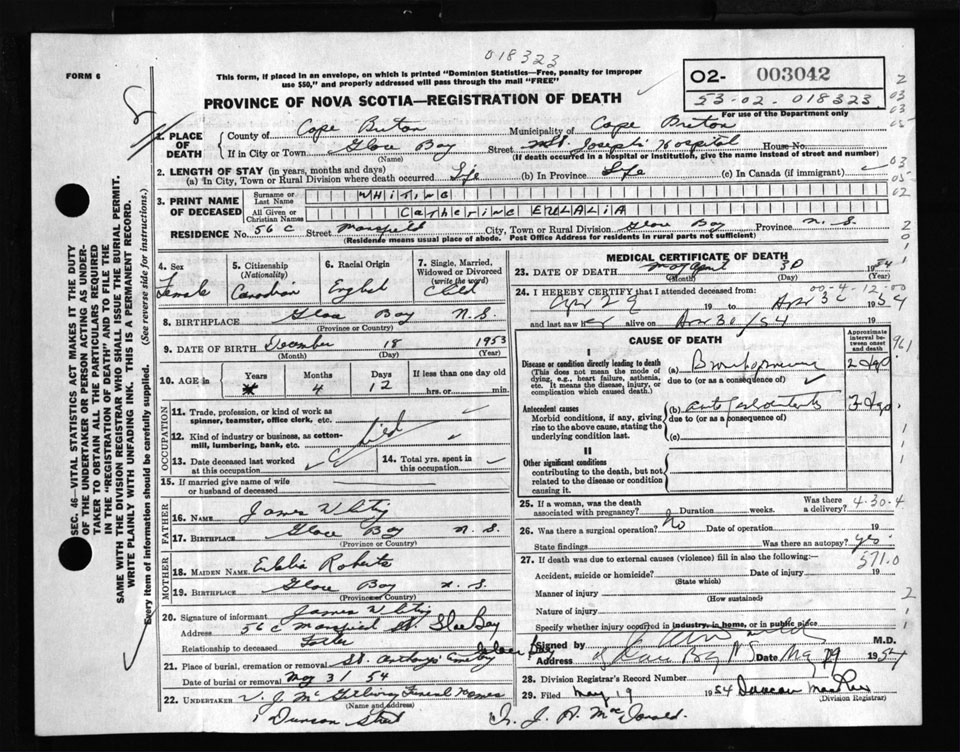 018323
FORM 6
This form, if placed in an envelope, on which is printed "Dominion Statistics—Free, penalty for improper
use $50," and properly addressed will pass through the mail "FREE"
02- 003042
53-02. 018323
For use of the Department only
PROVINCE OF NOVA SCOTIA—REGISTRATION OF DEATH
1. PLACE OF DEATH
County of Cape Breton Municipality of Cape Breton
If in City or Town Glace Bay Street St. Joseph's Hospital House No.
(Name) (If death occurred in a hospital or institution, give the name instead of street and number)
2. LENGTH OF STAY (in years, months and days)
(a) In City, Town or Rural Division where death occurred Life (b) In Province Life (c) In Canada (if immigrant)
3. PRINT NAME OF DECEASED
Surname or Last Name WHITING
All Given or Christian Names Catherine EULALIA
RESIDENCE No. 56 C Street Mansfield City, Town or Rural Division Glace Bay Province N. S.
(Residence means usual place of abode. Post Office Address for residents in rural parts not sufficient)
4. Sex Female
5. Citizenship (Nationality) Canadian
6. Racial Origin English
7. Single, Married, Widowed or Divorced (write the word) Child
8. BIRTHPLACE Glace Bay N.S.
(Province or Country)
9. DATE OF BIRTH December 18 1953
(Month) (Day) (Year)
10. AGE in Years Months 4 Days 12 If less than one day old hrs. or min.
OCCUPATION
11. Trade, profession, or kind of work as spinner, teamster, office clerk, etc.
12. Kind of industry or business, as cotton-mill, lumbering, bank, etc. Child
13. Date deceased last worked at this occupation
14. Total yrs. spent in this occupation
15. If married give name of wife or husband of deceased
FATHER
16. NAME James Whiting
17. BIRTHPLACE Glace Bay N. S.
(Province or Country)
MOTHER
18. MAIDEN NAME Roberts
19. BIRTHPLACE Glace Bay N. S.
(Province or Country)
20. Signature of informant James Whiting
Address 56 C Mansfield St. Glace Bay
Relationship to deceased Father
21. Place of burial, cremation or removal St. Anthony's Cemetery Glace Bay
Date of burial or removal May 3/54
22. UNDERTAKER V. J. McGillivray Funeral Homes
(Name and address)
1 Duncan Street
MEDICAL CERTIFICATE OF DEATH
23. DATE OF DEATH April 30 1954
(Month) (Day)
00-4-12-00
24. I HEREBY CERTIFY that I attended deceased from:
Apr 29 19 to Apr 30 1954
and last saw her alive on Apr 30/54
CAUSE OF DEATH
Approximate interval between onset and death
I
Disease or condition directly leading to death
(This does not mean the mode of dying, e.g., heart failure, asthenia, etc. It means the disease, injury, or complication which caused death.)
(a) Bronchopneumonia
due to (or as a consequence of)
Antecedent causes
Morbid conditions, if any, giving rise to the above cause, stating the underlying condition last.
(b)
due to (or as a consequence of)
(c)
II
Other significant conditions
contributing to the death, but not related to the disease or condition causing it.
25. If a woman, was the death associated with pregnancy? Duration weeks. Was there a delivery?
4-30-4
26. Was there a surgical operation? No Date of operation 19
State findings Was there an autopsy? yes
571.0
27. If death was due to external causes (violence) fill in also the following:—
Accident, suicide or homicide? Date of injury 19
(State which)
Manner of injury
(How sustained)
Nature of injury
Specify whether injury occurred in industry, in home, or in public place
Signed by M.D.
Address Glace Bay NS Date 1954
28. Division Registrar's Record Number
29. Filed May 19 1954
(Division Registrar)
J. A. MacDonald.
SEC. 46—VITAL STATISTICS ACT MAKES IT THE DUTY
OF THE UNDERTAKER OR PERSON ACTING AS UNDER-
TAKER TO OBTAIN ALL THE PARTICULARS REQUIRED
IN THE "REGISTRATION OF DEATH" AND TO FILE THE
SAME WITH THE DIVISION REGISTRAR WHO SHALL ISSUE THE BURIAL PERMIT.
WRITE PLAINLY WITH UNFADING INK. THIS IS A PERMANENT RECORD.
Every item of information should be carefully supplied. (See reverse side for instructions.)